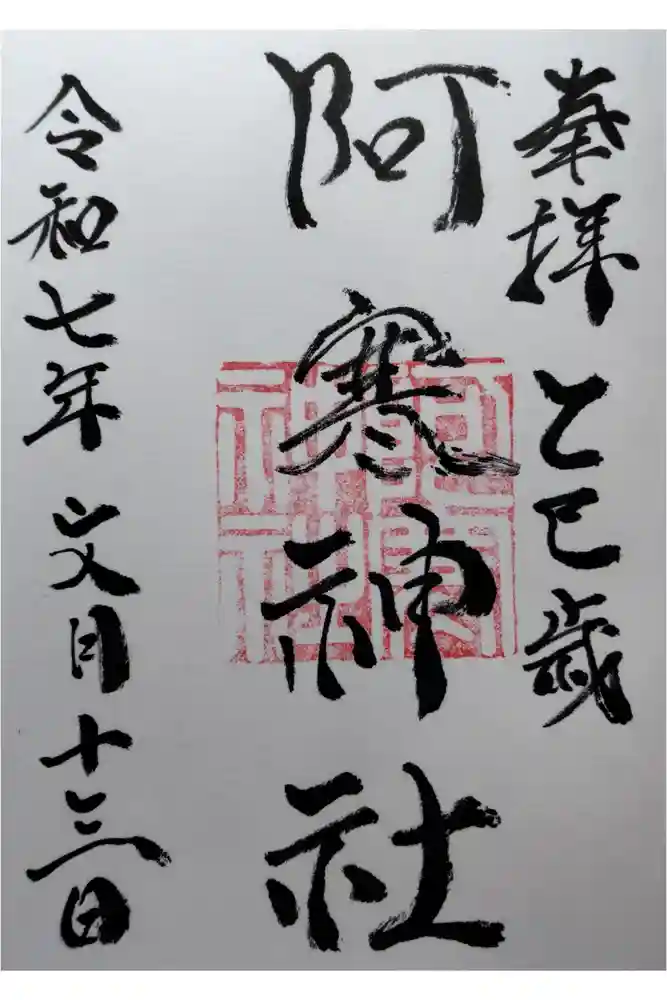 奉拝 乙巳歳
阿寒神社
令和七年 文月十三日
阿寒神社